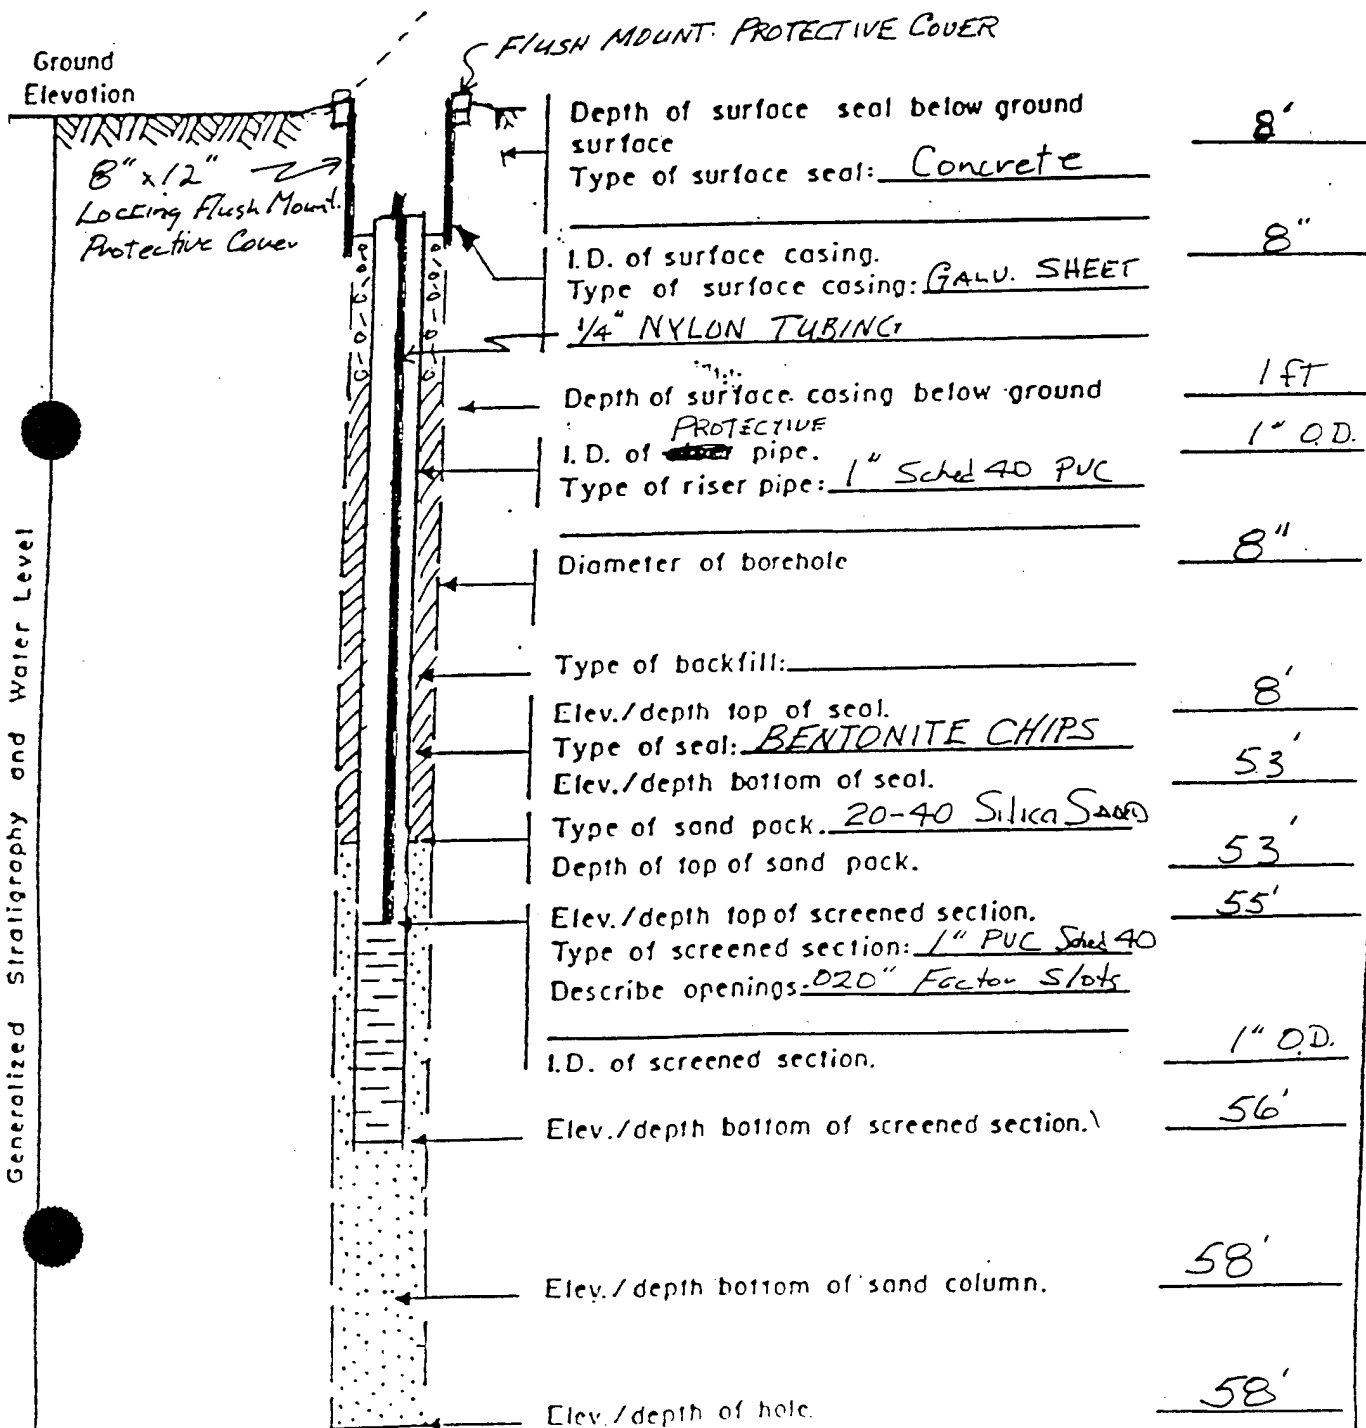 FLUSH MOUNT PROTECTIVE COVER
Ground
Elevation
8" x 12"
Locking Flush Mount.
Protective Cover
Depth of surface seal below ground
surface 8'
Type of surface seal: Concrete
I.D. of surface casing. 8"
Type of surface casing: GALV. SHEET
1/4" NYLON TUBING
Depth of surface casing below ground 1 fT
PROTECTIVE
I.D. of pipe. 1" O.D.
Type of riser pipe: 1" Sched 40 PVC
Diameter of borehole 8"
Type of backfill:
Elev./depth top of seal. 8'
Type of seal: BENTONITE CHIPS
Elev./depth bottom of seal. 53'
Type of sand pack. 20-40 Silica SAND
Depth of top of sand pack. 53'
Elev./depth top of screened section. 55'
Type of screened section: 1" PVC Sched 40
Describe openings. .020" Factor Slots
I.D. of screened section. 1" O.D.
Elev./depth bottom of screened section. 56'
Elev./depth bottom of sand column. 58'
Elev./depth of hole. 58'
Generalized Stratigraphy and Water Level